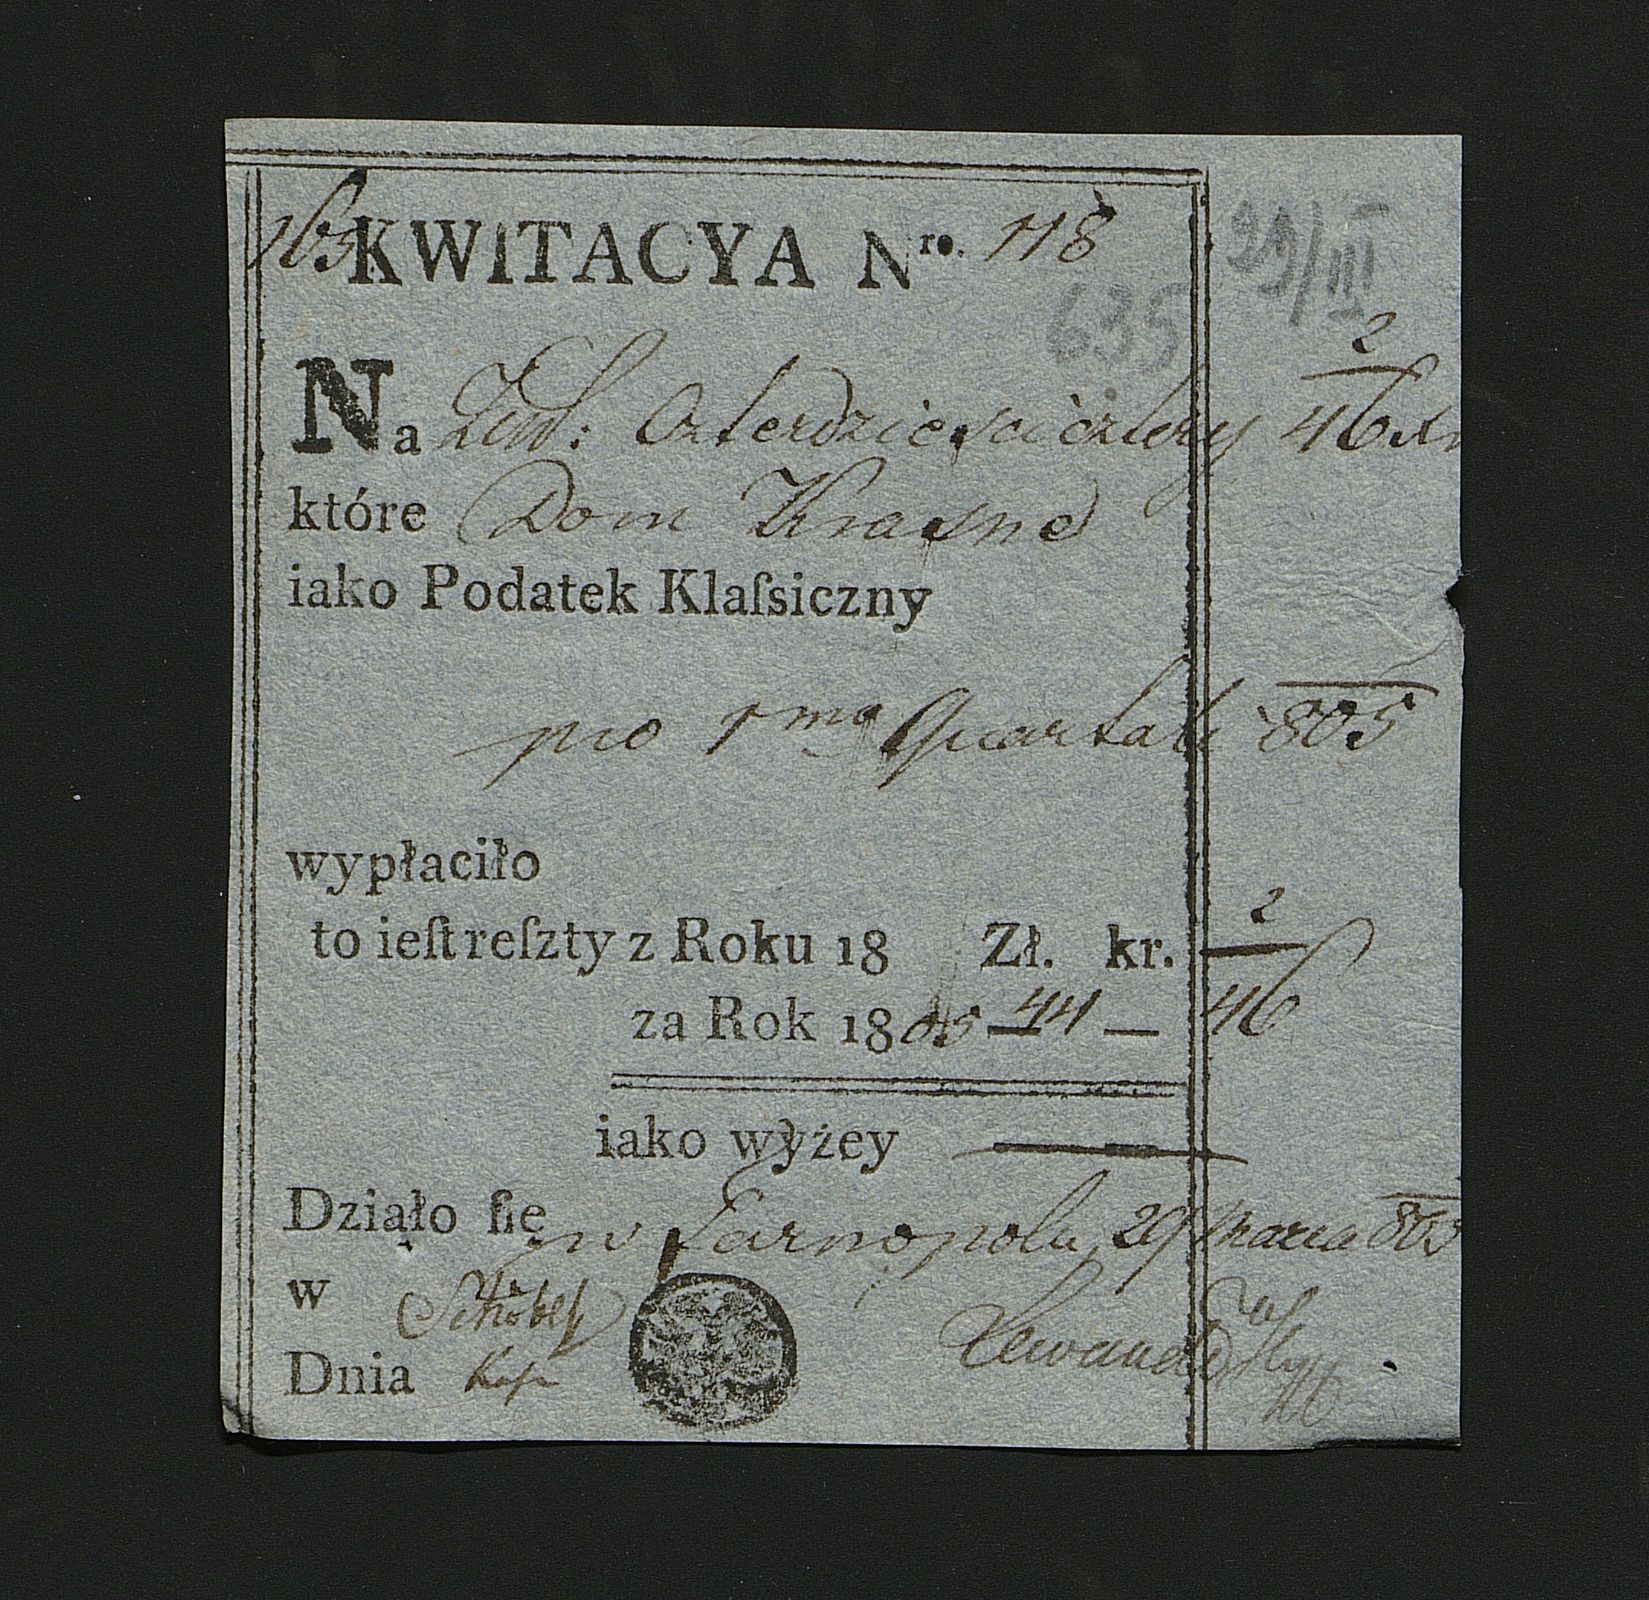 KWITACYA Nro. 118
29/III
635
2
Na Zł: Czterdzieści cztery 46 xr
które Dom Krasne
iako Podatek Klaſsiczny
pro 1ma Quartali 805
wypłaciło
to ieſt reſzty z Roku 18 Zł. kr. 2
za Rok 1805 — 44 — 46
iako wyżey
Działo ſię w Tarnopolu 29 Marca 805
w
Dnia